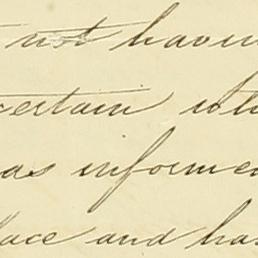 not havin
certain wh
as informe
lace and has